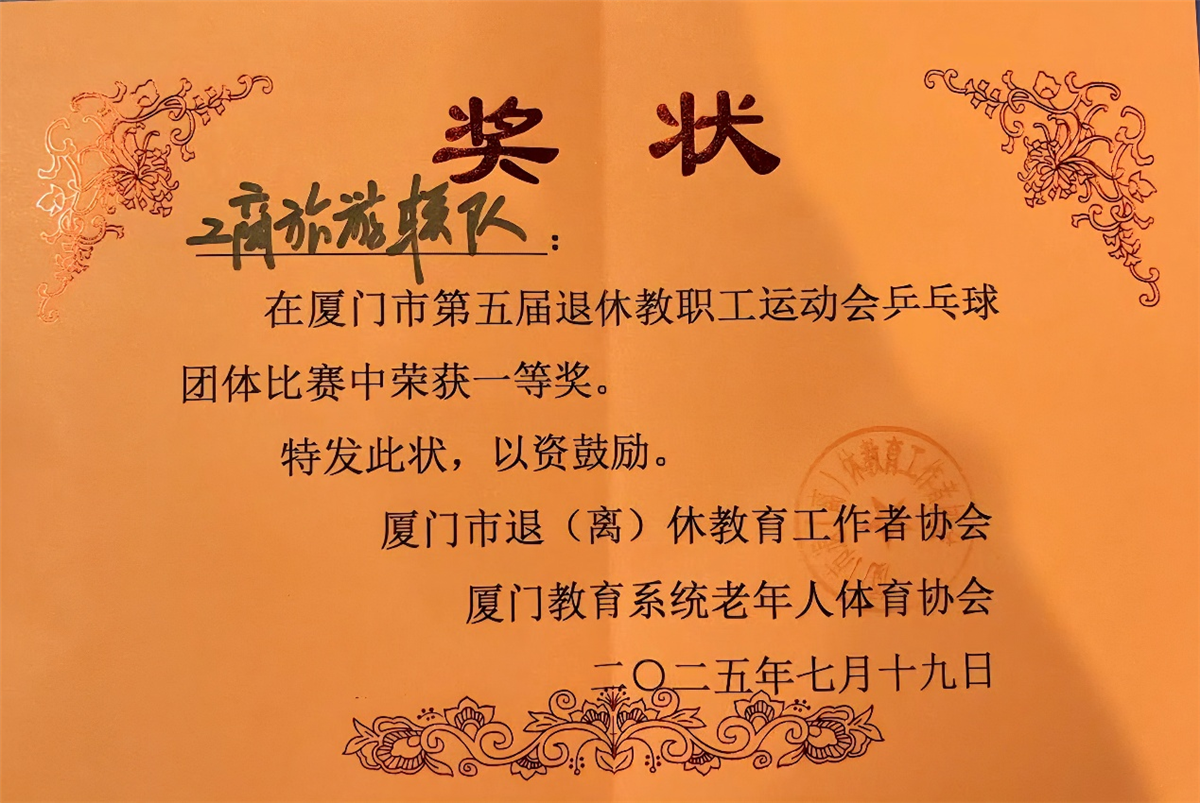 奖 状
工商旅游联队：
在厦门市第五届退休教职工运动会乒乓球
团体比赛中荣获一等奖。
特发此状，以资鼓励。
厦门市退（离）休教育工作者协会
厦门教育系统老年人体育协会
二〇二五年七月十九日